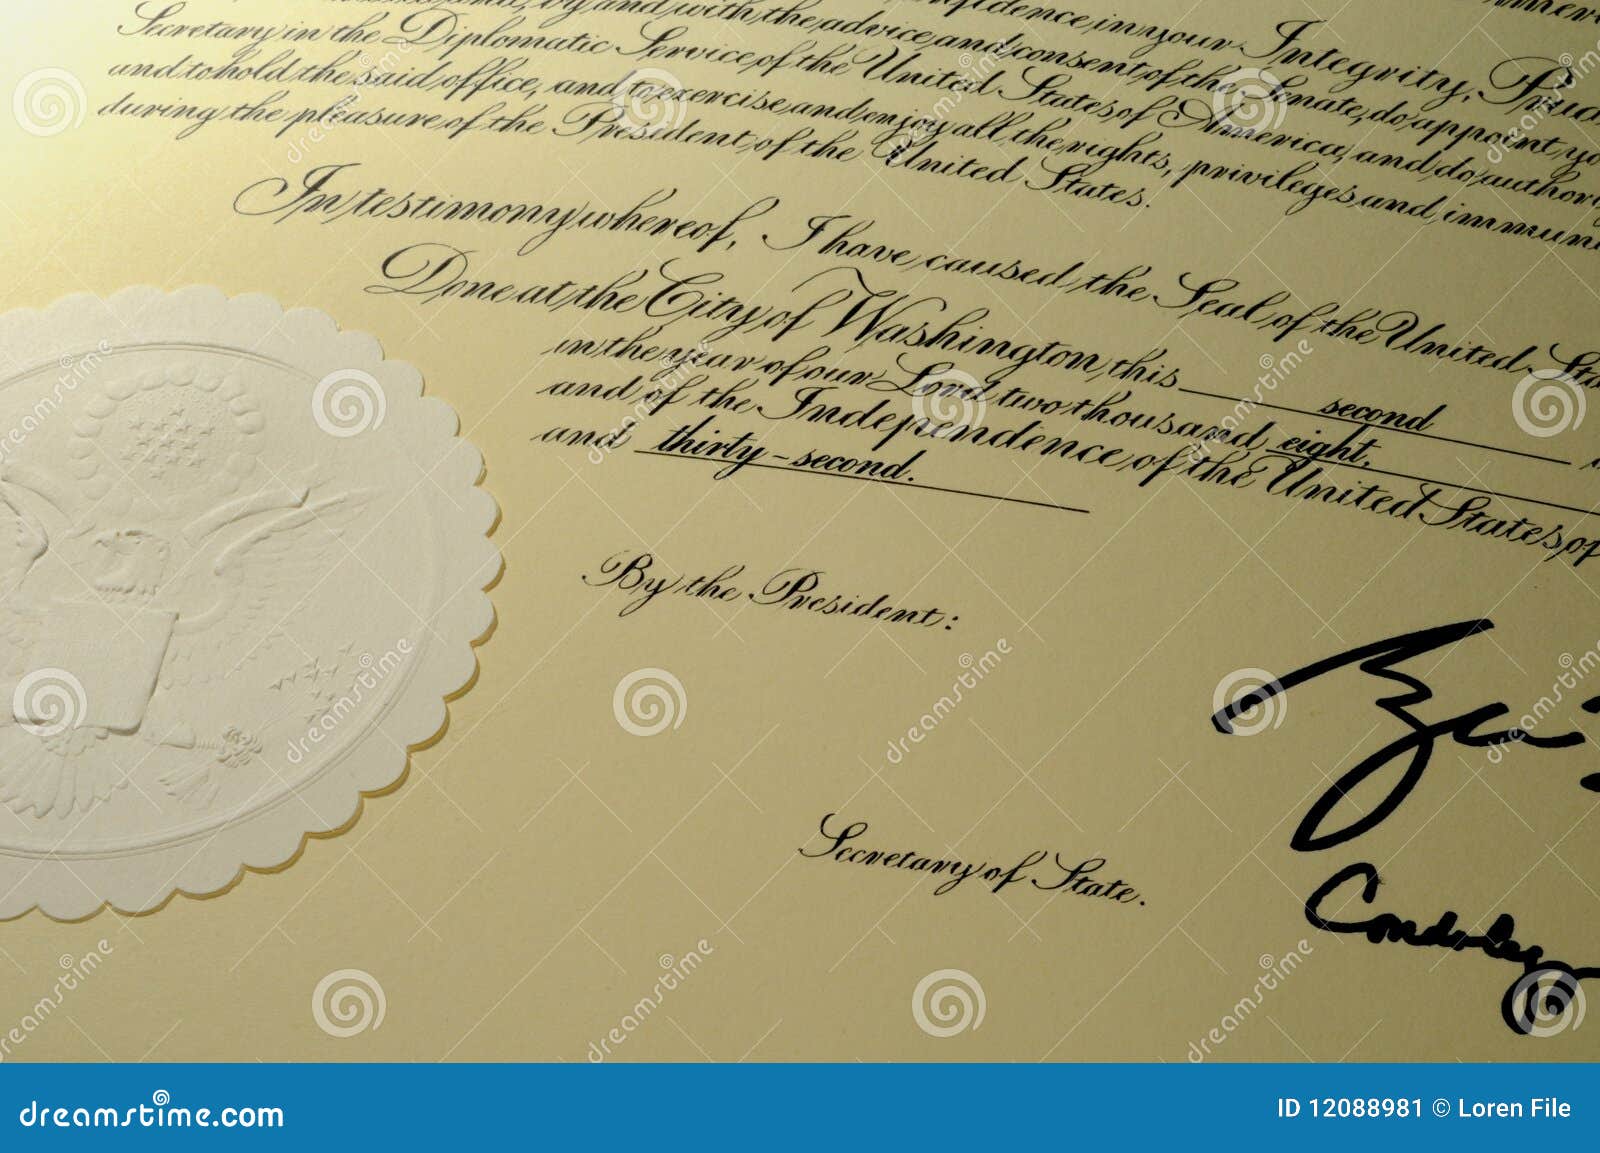 by and with the advice and consent of the Senate, do appoint
confidence in your Integrity,
Secretary in the Diplomatic Service of the United States of America, and do
and to hold the said office, and to exercise and enjoy all the rights, privileges and
during the pleasure of the President of the United States.
In testimony whereof, I have caused the Seal of the United
Done at the City of Washington this second
in the year of our Lord two thousand eight,
and of the Independence of the United States of
and thirty-second.
By the President:
Secretary of State.
dreamstime.com
ID 12088981 © Loren File